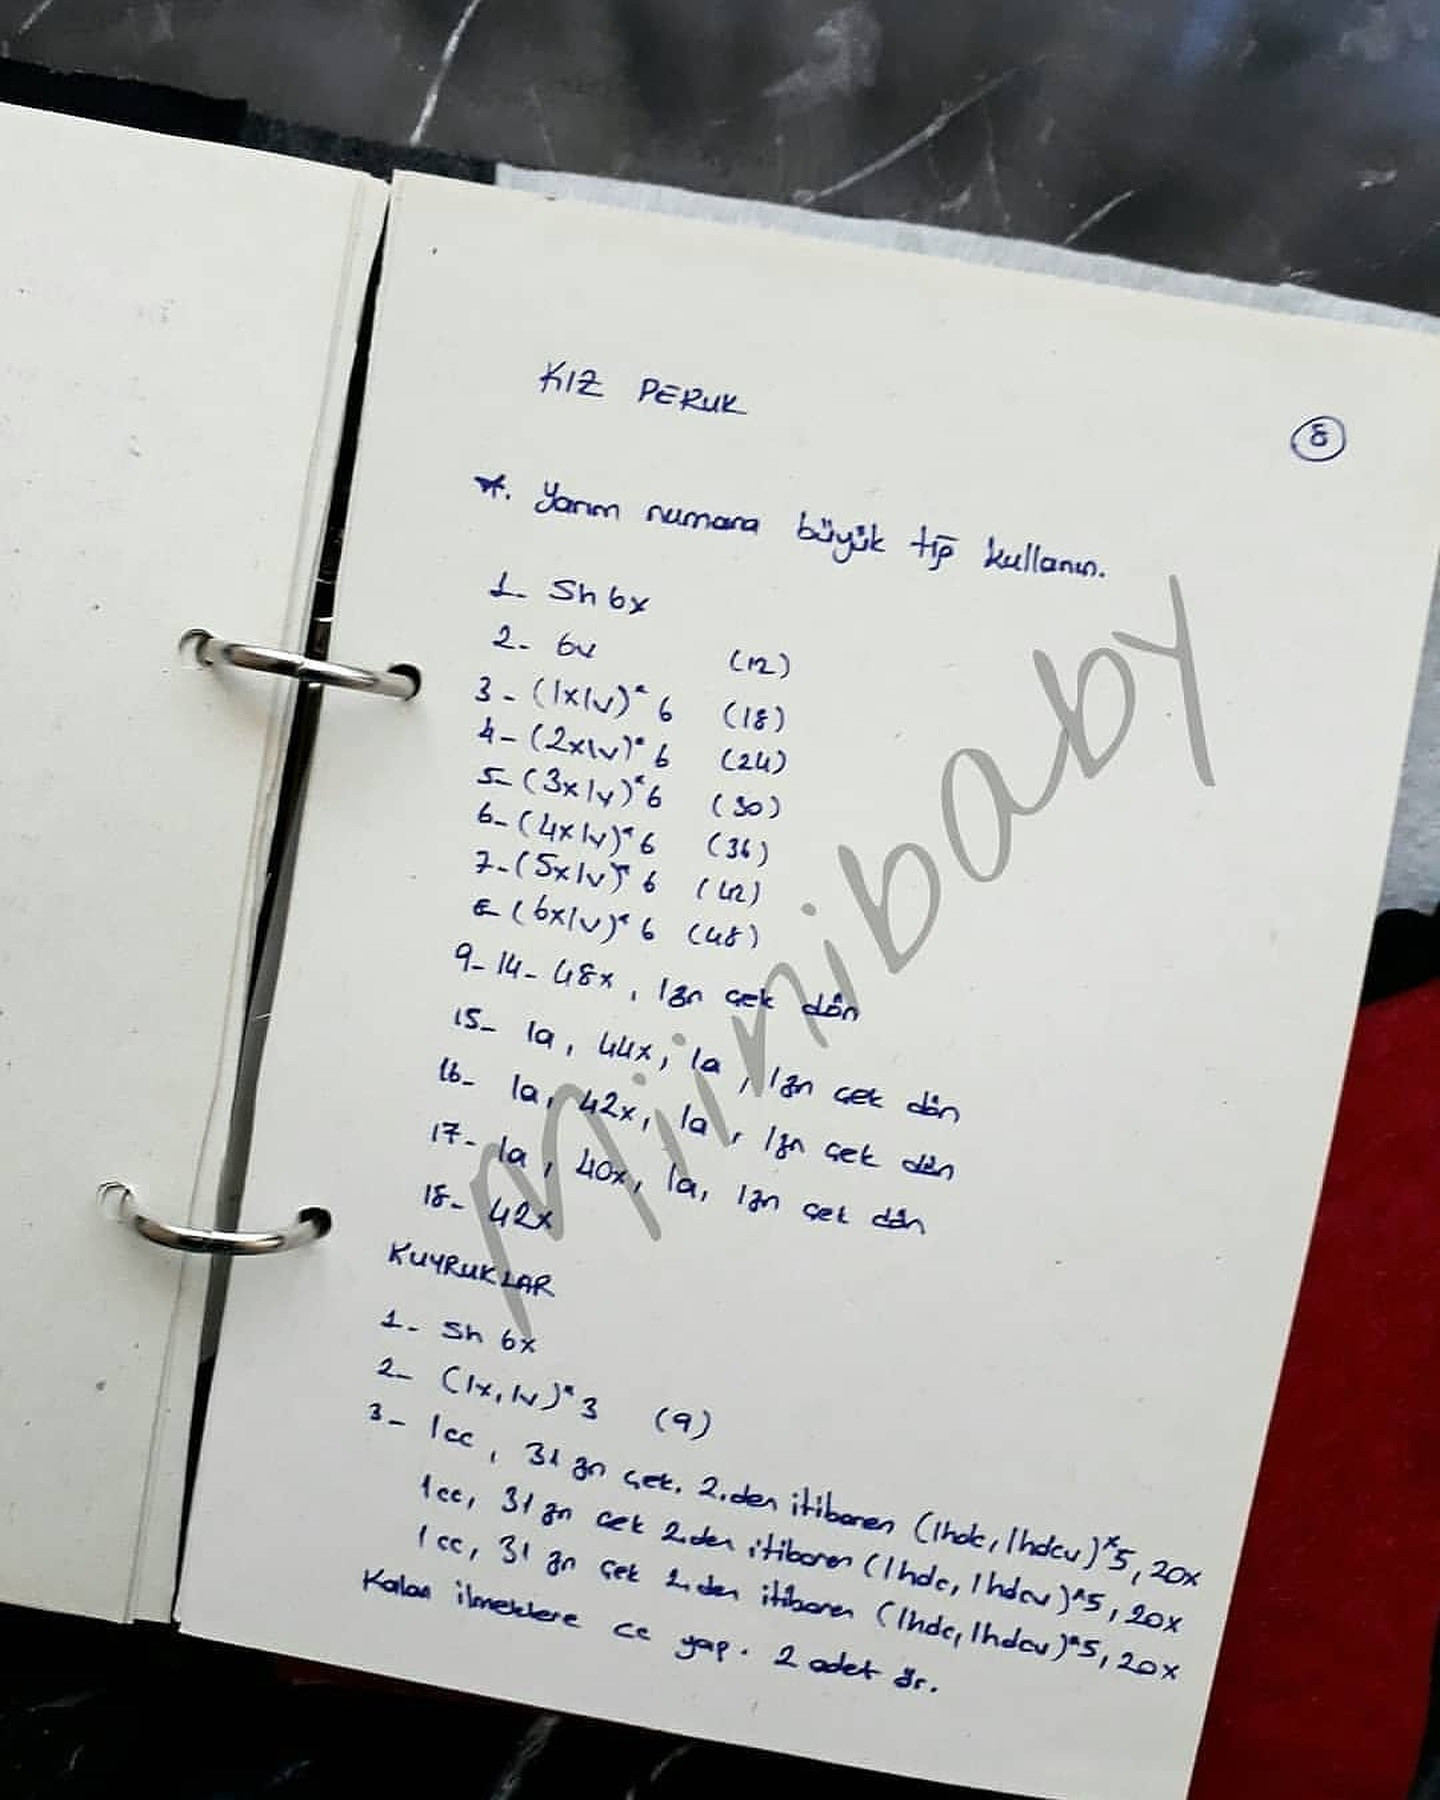 KIZ PERUK
8
*. Yarım numara büyük tığ kullanın.
1- Sh 6x
2- 6v (12)
3- (1x1v)*6 (18)
4- (2x1v)*6 (24)
5- (3x1v)*6 (30)
6- (4x1v)*6 (36)
7- (5x1v)*6 (42)
8- (6x1v)*6 (48)
9-14- 48x, 1zn çek dön
15- 1a, 44x, 1a, 1zn çek dön
16- 1a, 42x, 1a, 1zn çek dön
17- 1a, 40x, 1a, 1zn çek dön
18- 42x
KUYRUKLAR
1- Sh 6x
2- (1x,1v)*3 (9)
3- 1cc, 31 zn çek. 2.den itibaren (1hdc, 1hdcv)*5, 20x
1cc, 31 zn çek 2.den itibaren (1hdc, 1hdcv)*5, 20x
1cc, 31 zn çek 2.den itibaren (1hdc, 1hdcv)*5, 20x
Kalan ilmeklere cc yap. 2 adet ör.
Miinibaby